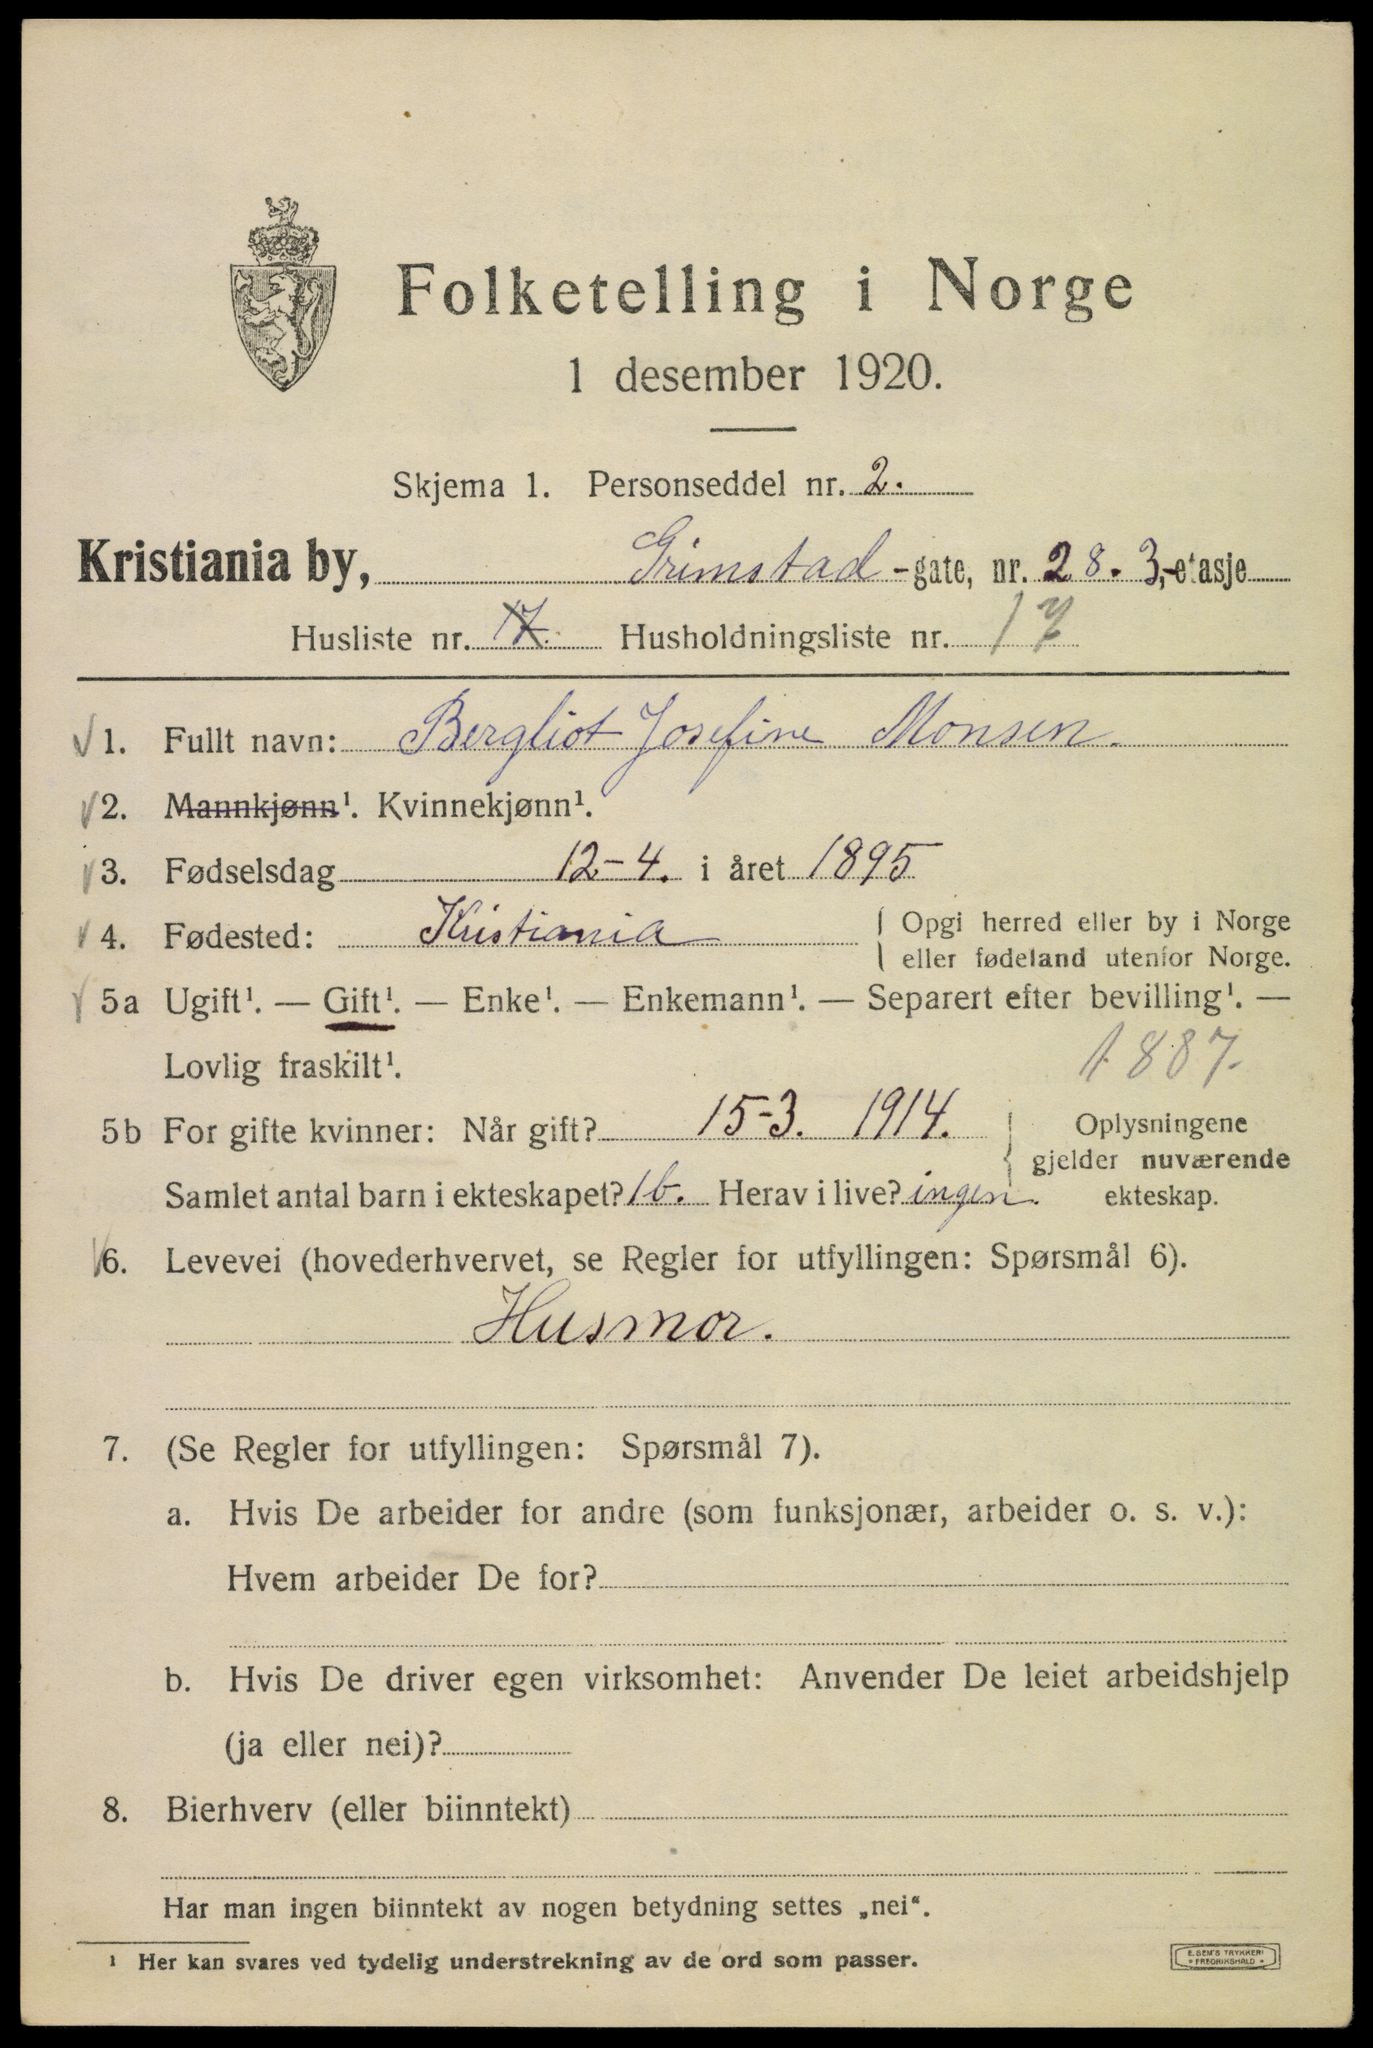 Folketelling i Norge
1 desember 1920.
Skjema 1. Personseddel nr. 2.
Kristiania by, Grimstad -gate, nr. 28. 3,-etasje
Husliste nr. 17. Husholdningsliste nr. 17
1. Fullt navn: Bergliot Josefine Monsen.
2. Mannkjønn¹. Kvinnekjønn¹.
3. Fødselsdag 12-4. i året 1895
4. Fødested: Kristiania { Opgi herred eller by i Norge
eller fødeland utenfor Norge.
5a Ugift¹. — Gift¹. — Enke¹. — Enkemann¹. — Separert efter bevilling¹. —
Lovlig fraskilt¹. 1887.
5b For gifte kvinner: Når gift? 15-3. 1914. Oplysningene
gjelder nuværende
Samlet antal barn i ekteskapet? 1b. Herav i live? ingen. ekteskap.
6. Levevei (hovederhvervet, se Regler for utfyllingen: Spørsmål 6).
Husmor.
7. (Se Regler for utfyllingen: Spørsmål 7).
a. Hvis De arbeider for andre (som funksjonær, arbeider o. s. v.):
Hvem arbeider De for?
b. Hvis De driver egen virksomhet: Anvender De leiet arbeidshjelp
(ja eller nei)?
8. Bierhverv (eller biinntekt)
Har man ingen biinntekt av nogen betydning settes „nei“.
¹ Her kan svares ved tydelig understrekning av de ord som passer.
E. SEM'S TRYKKERI
* FREDRIKSHALD *